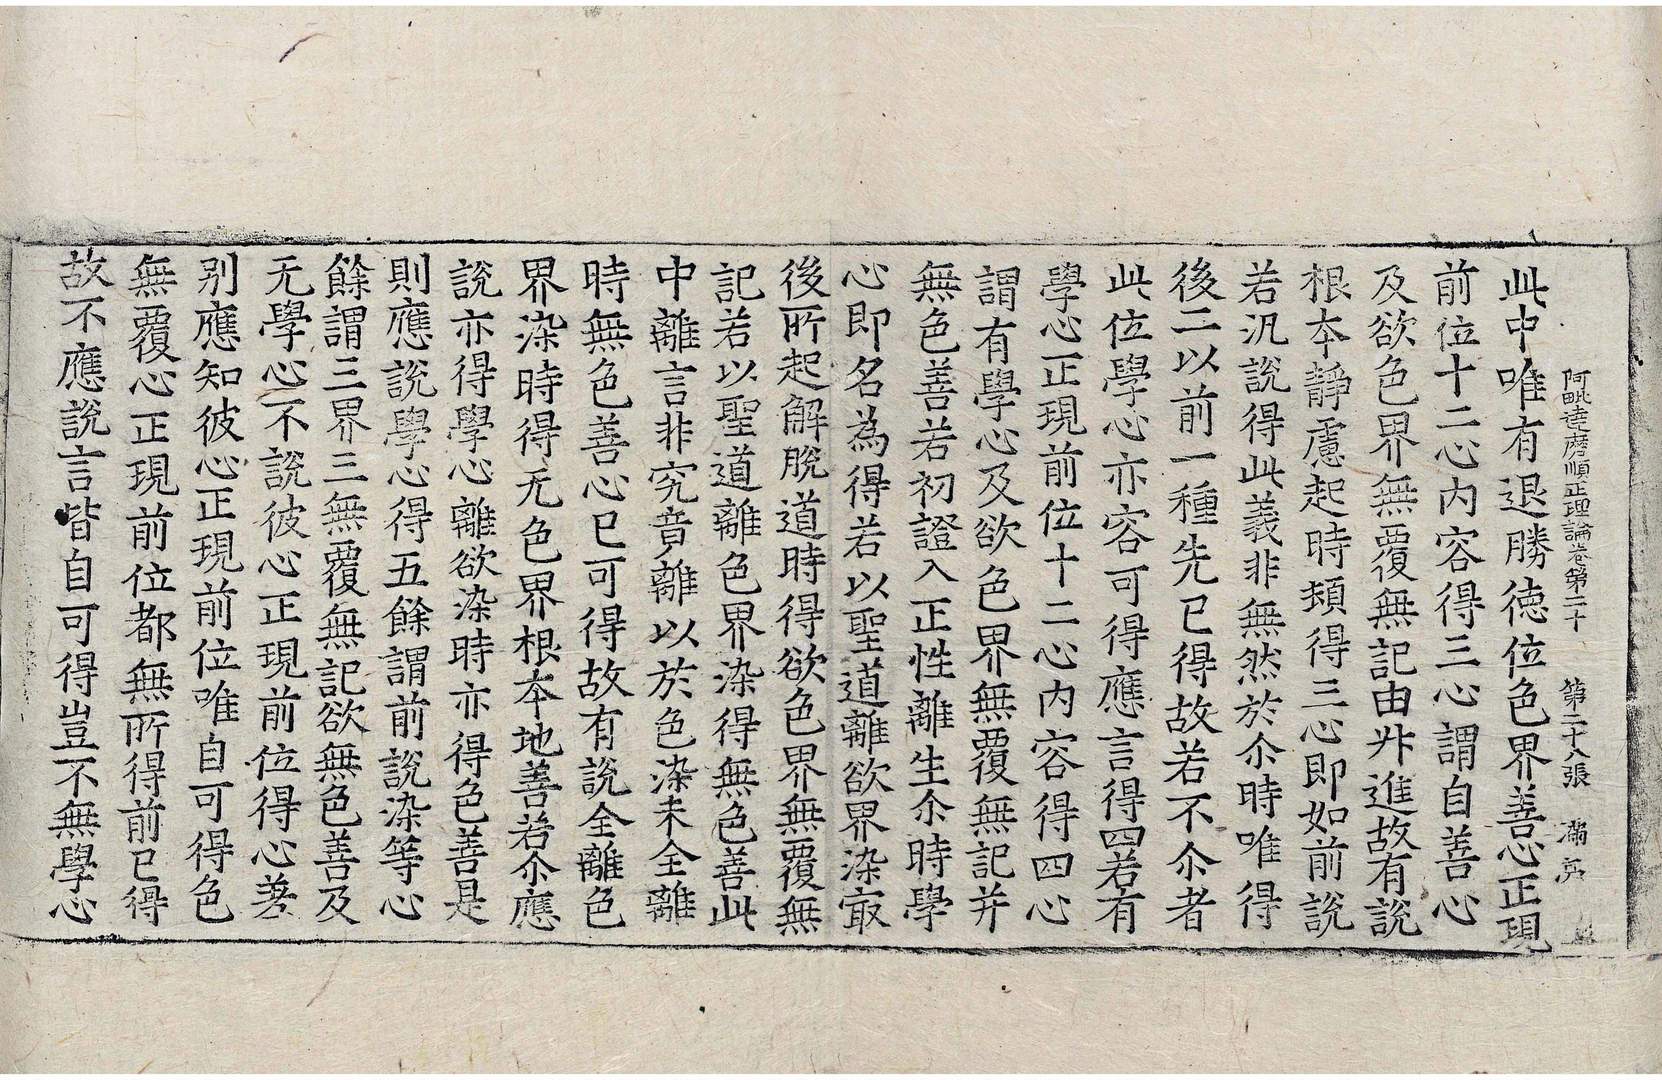 阿毗達磨順正理論卷第二十　第二十八張　滿
此中唯有退勝德位色界善心正現
前位十二心内容得三心謂自善心
及欲色界無覆無記由升進故有說
根本靜慮起時頓得三心即如前說
若汎說得此義非無然於尒時唯得
後二以前一種先已得故若不尒者
此位學心亦容可得應言得四若有
學心正現前位十二心内容得四心
謂有學心及欲色界無覆無記并
無色善若初證入正性離生尒時學
心即名為得若以聖道離欲界染㝡
後所起解脫道時得欲色界無覆無
記若以聖道離色界染得無色善此
中離言非究竟離以於色染未全離
時無色善心已可得故有說全離色
界染時得无色界根本地善若尒應
說亦得學心離欲染時亦得色善是
則應說學心得五餘謂前說染等心
餘謂三界三無覆無記欲無色善及
无學心不說彼心正現前位得心差
別應知彼心正現前位唯自可得色
無覆心正現前位都無所得前已得
故不應說言皆自可得豈不無學心